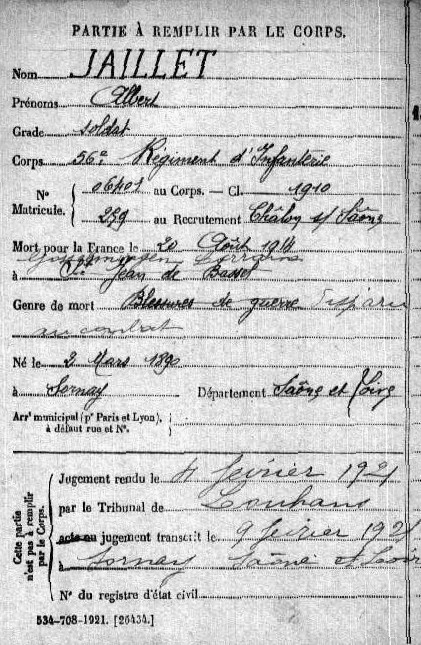 PARTIE À REMPLIR PAR LE CORPS.
Nom JAILLET
Prénoms Albert
Grade soldat
Corps 56e Régiment d'Infanterie
N° Matricule. 06401 au Corps. — Cl. 1910
259 au Recrutement Châlon s/ Saône
Mort pour la France le 20 Août 1914
Lorraine
à St Jean de Basset
Genre de mort Blessures de guerre Disparu
au combat
Né le 2 Mars 1890
à Sornay Département Saône et Loire
Arrt municipal (pr Paris et Lyon),
à défaut rue et N°.
Cette partie n'est pas à remplir par le Corps.
Jugement rendu le 4 février 1921
par le Tribunal de Louhans
acte ou jugement transcrit le 9 février 1921
à Sornay Saône et Loire
N° du registre d'état civil
534-708-1921. [26434.]